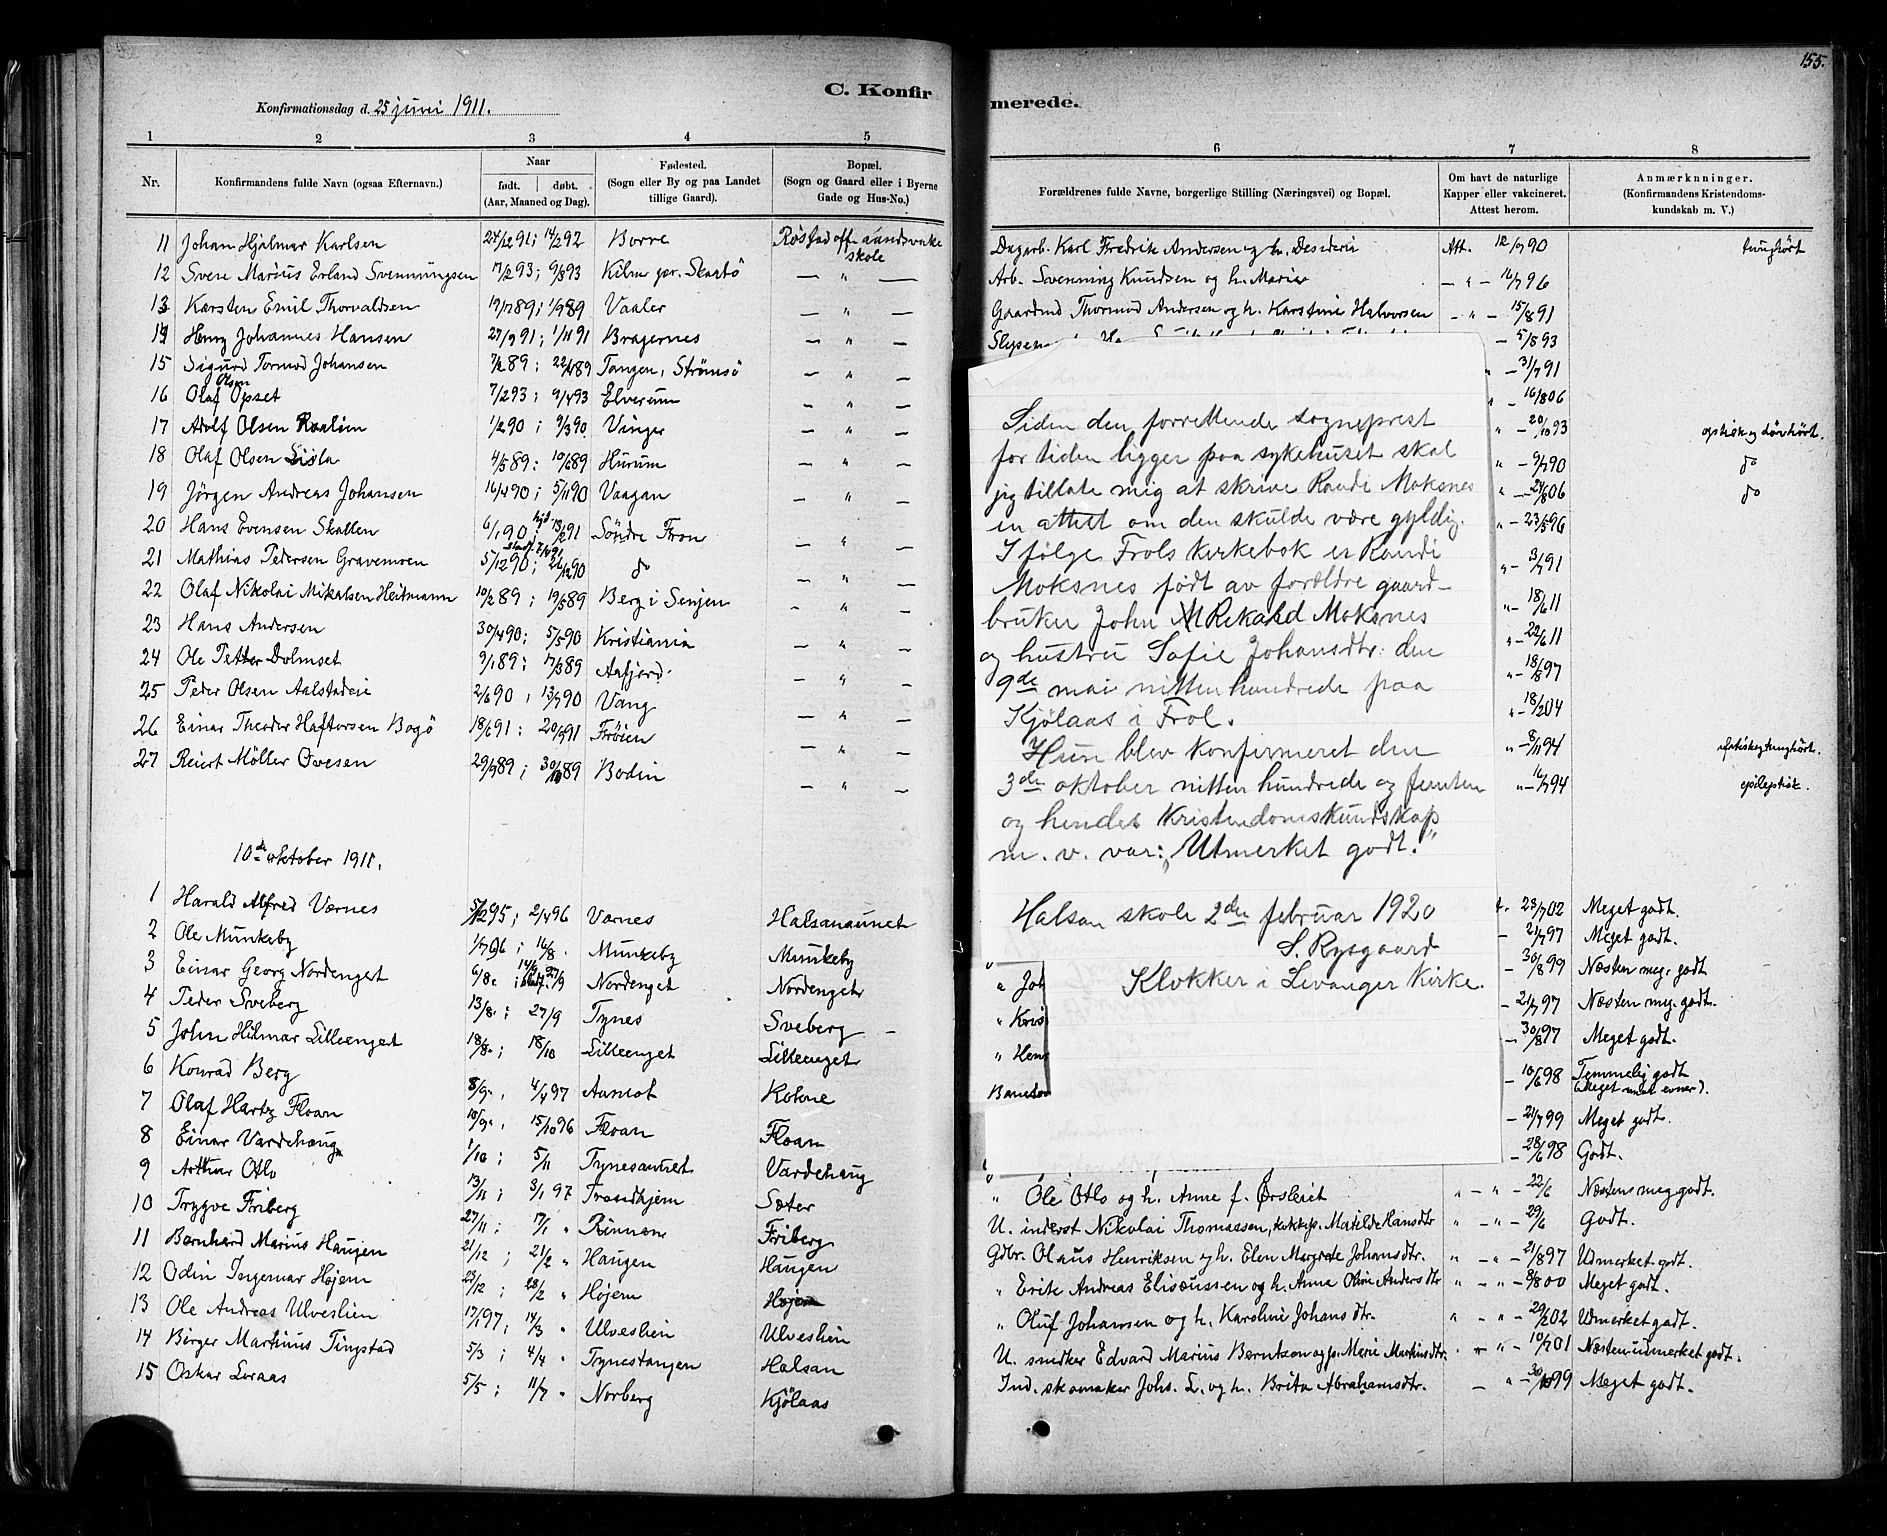 155.
C. Konfirmerede.
Konfirmationsdag d. 25 juni 1911.
1 2 3 4 5 6 7 8
Nr. Konfirmandens fulde Navn (ogsaa Efternavn.) Naar født. døbt. (Aar, Maaned og Dag). Fødested. (Sogn eller By og paa Landet tillige Gaard). Bopæl. (Sogn og Gaard eller i Byerne Gade og Hus-No.) Forældrenes fulde Navne, borgerlige Stilling (Næringsvei) og Bopæl. Om havt de naturlige Kapper eller vakcineret. Attest herom. Anmærkninger. (Konfirmandens Kristendomskundskab m. V.)
11 Johan Hjalmar Karlsen 24/12 91; 14/2 92 Borre Røstad off. aandsvake skole Dagarb. Karl Fredrik Andersen og h. Desideria Att. 12/7 90 tunghørt
12 Svere Marius Erland Svenningsen 17/2 93; 9/8 93 Skaatö — " — Arb. Svenning Knudsen og h. Marie — " — 14/7 96
13 Karsten Emil Thorvaldsen 19/7 89; 1/9 89 Vaaler — " — Gaardmd Thormod Andersen og h. Karstine Halvorsen — " — 15/8 91
14 Henry Johannes Hansen 27/9 91; 1/11 91 Bragernes — " — — 5/8 93
15 Sigurd Tormod Johansen 7/2 89; 22/4 89 Tangen, Strømsö — " — " — 31/7 91
16 Olaf Olsen Opset 7/2 93; 9/4 93 Elverum — " — " — 16/8 06
17 Adolf Olsen 1/2 90; 9/3 90 Vinger — " — " — 20/10 93
18 Olaf Olsen 4/5 89; 10/6 89 Hurum — " — " — 9/7 90 do
19 Jörgen Andreas Johansen 16/4 90; 5/11 90 Vaagan — " — " — 24/8 06 do
20 Hans Evensen Skatten 6/1 90 Söndre Fron — " — " — 23/5 96
21 Mathias Pedersen Gravemoen 5/12 90; 26/12 90 do — " — " — 3/7 91
22 Olaf Nikolai Mikalsen Heitmann 10/2 89; 19/5 89 Berg i Senjen — " — " — 18/6 11
23 Hans Andersen 30/4 90; 5/5 90 Kristiania — " — " — 22/6 11
24 Ole Petter Dolmset 9/1 89; 17/3 89 Aafjord. — " — " — 18/8 97
25 Peder Olsen Aalstadeie 2/6 90, 13/7 90 Vang — " — " — 18/2 04
26 Einar Theodor Haftorsen Bogö 18/6 91; 20/9 91 Frøien — " — " — 8/11 94
27 Reiert Möller Ovesen 29/9 89; 30/10 89 Bodin — " — " — 16/7 94 epileptisk.
Siden den forrettende sogneprest
for tiden ligger paa sykehuset skal
jeg tillate mig at skrive Randi Moksnes
en attest om den skulde være gyldig.
I følge Frols kirkebok er Randi
Moksnes født av forældre gaard-
bruker John Rikard Moksnes
og hustru Sofie Johansdtr. den
9de mai nittenhundrede paa
Kjölaas i Frol.
Hun blev konfirmeret den
3die oktober nittenhundrede og femten
og hendes Kristendomskundskap
m. v. var: „Utmerket godt."
Halsan skole 2den februar 1920
S. Rysgaard
Klokker i Levanger Kirke.
10de oktober 1911.
1 Harald Alfred Værnes 5/12 95; 2/4 96 Værnes Halsanaunet 23/7 02 Meget godt.
2 Ole Munkeby 1/7 96; 16/8. Munkeby Munkeby — 21/7 97 Meget godt.
3 Einar Georg Nordenget 6/8 Nordenget Nordenget — 30/8 99 Næsten meg. godt " Joh
4 Peder Sveberg 13/8 ; 27/9 Tynes Sveberg — 21/7 97 Næsten meg. godt. " Kris
5 John Hilmar Lilleenget 18/8; 18/10 Lilleenget Lilleenget — 30/8 97 Meget godt. " Hen
6 Konrad Berg 8/9, 4/4 97 Aamot — 10/6 98 Temmelig godt
7 Olaf Hartz Floan 10/9, 15/10 96 Floan Floan — 21/7 99 Meget godt.
8 Einar Vardehaug 1/10; 5/11 Tynesaunet Vardehaug — 28/6 98 Godt.
9 Arthur Otlo 13/11; 3/1 97 Trondhjem Sæter " Ole Otlo og h. Anne f. Ørsleiet " — " — 22/6 Næsten meg godt.
10 Trygve Friberg 27/11; 17/1 " Rinnan Friberg U. inderst Nikolai Thomassen, Matilde Hansdtr " — " — 29/6 Godt.
11 Bernhard Marius Haugen 21/12; 21/2 " Haugen Haugen Gdbr. Olaus Henriksen og h. Elen Margrete Johansdtr. " — " — 21/8 97 Udmerket godt.
12 Odin Ingemar Højem 23/12; 28/2 " Højem Højem " Erik Andreas Eliseussen og h. Anna Oline Andersdtr " — " — 8/8 00 Meget godt.
13 Ole Andreas Ulveslien 17/1 97; 14/3 " Ulveslien Ulveslien " Oluf Johansen og h. Karoline Johansdtr. " — " — 29/2 02 Udmerket godt.
14 Birger Martinus Tingstad 5/3; 4/4 " Tynestangen Halsan U. snidker Edvard Marius Berntsen og p. Marie Martinsdtr. " — " — 10/7 01 Næsten udmerket godt.
15 Oskar Loraas 5/5; 11/7 " Norberg Kjölaas Ind. skomaker Johs. L. og h. Brita Abrahamsdtr. — " — 30/10 99 Meget godt.